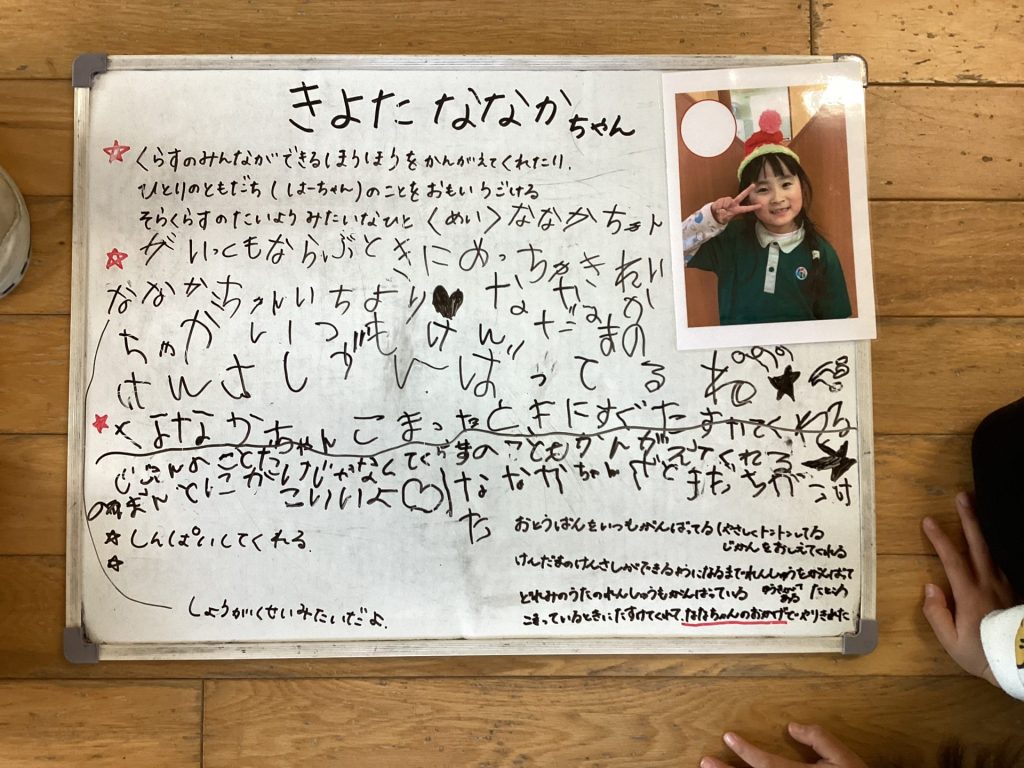 きよた ななか ちゃん
くらすのみんなができるほうほうをかんがえてくれたり、
ひとりのともだち(しほーちゃん)のことをおもいうごける
そらくらすのたいようみたいなひと〈めい〉ななかちゃん
がいつもならぶときにめっちゃきれい
ななかちゃんいちより♥
ちゃがいーつもけんだまの
けんさしがんばってるね
ななかちゃんこまったときにすぐたすけてくれる
じぶんのことだけじゃなくてくらすのこともかんがえてくれる
ほんとにかっこいいよ♡
ななかちゃんがともだち
しんぱいしてくれる。
しょうがくせいみたいだよ。
おとうばんをいつもがんばってる(やさしくトントンしてる
じかんをおしえてくれる
けんだまのけんさしができるようになるまでれんしゅうをがんばって
どれみのうたのれんしゅうもがんばっている
こまっているときにたすけてくれて、ななちゃんのおかげでやりきれた